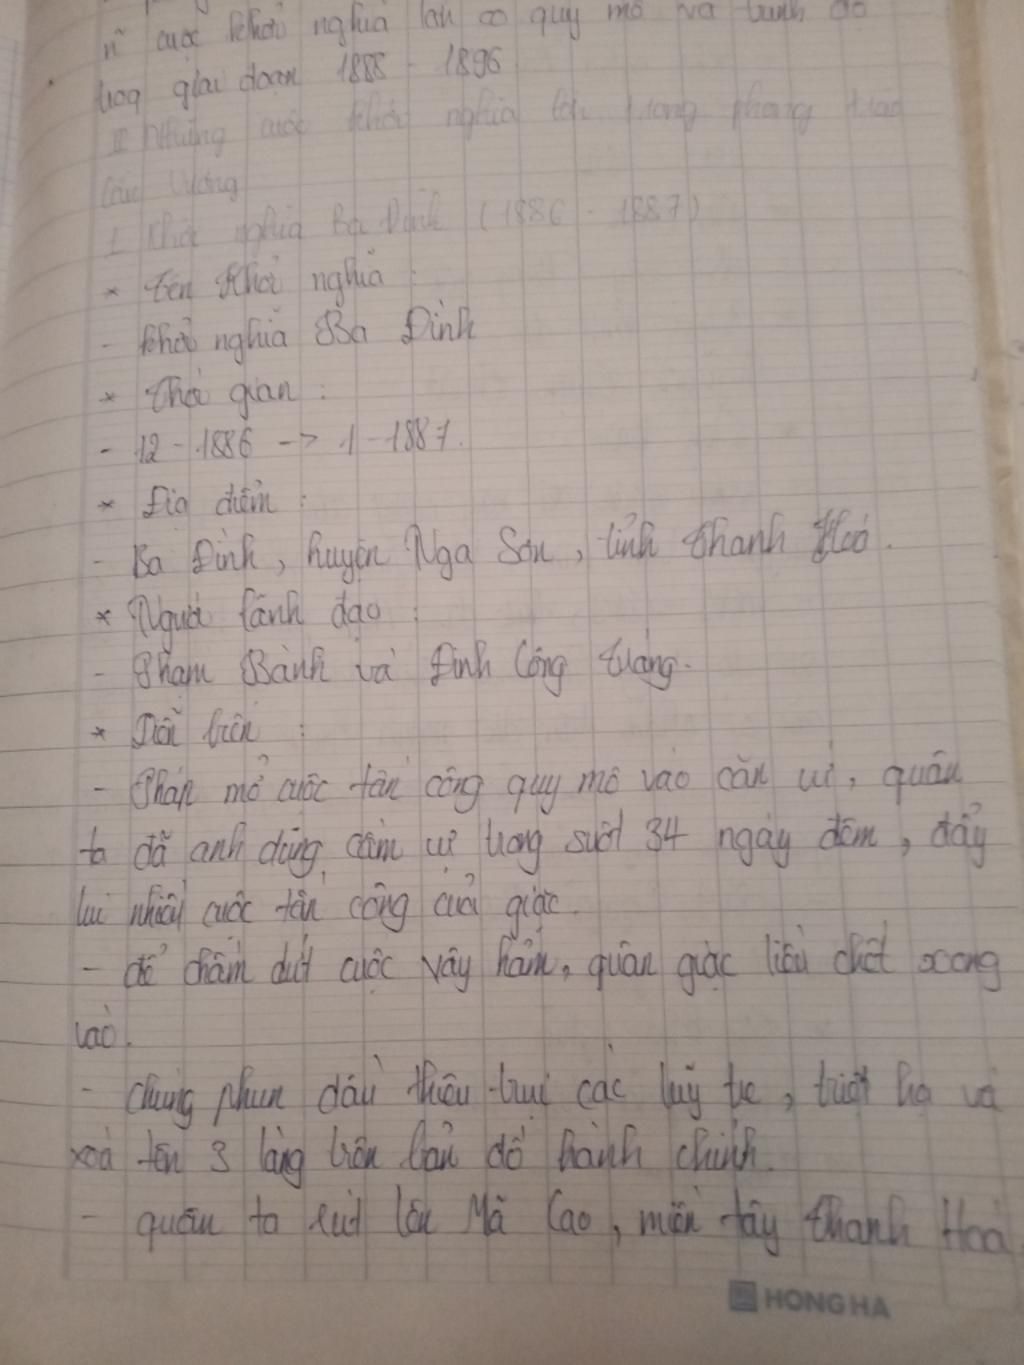 cuộc khởi nghĩa lớn có quy mô và trình độ
trog giai đoạn 1888 - 1896
II Những cuộc khởi nghĩa lớn trong phong trào
Cần Vương
1 Khởi nghĩa Ba Đình (1886 - 1887)
* tên khởi nghĩa :
- khởi nghĩa Ba Đình
* thời gian :
- 12 - 1886 -> 1 - 1887.
* Địa điểm :
- Ba Đình, huyện Nga Sơn, tỉnh thanh Hoá.
* Người lãnh đạo :
- Phạm Bành và Đinh Công tráng.
* Diễn biến :
- Pháp mở cuộc tấn công quy mô vào căn cứ, quân
ta đã anh dũng cầm cự trong suốt 34 ngày đêm, đẩy
lùi nhiều cuộc tấn công của giặc.
- để chấm dứt cuộc vây hãm, quân giặc liều chết xoong
vào.
- chúng phun dầu thiêu trụi các luỹ tre, triệt hạ và
xoá tên 3 làng trên bản đồ hành chính.
- quân ta rút lên Mã Cao, miền tây thanh Hoá
HONG HA